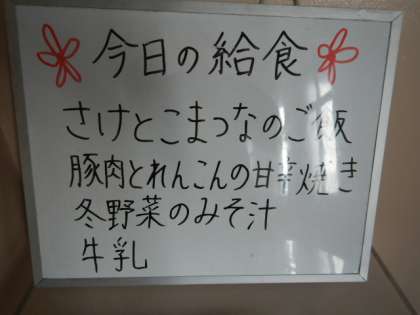 今日の給食
さけとこまつなのご飯
豚肉とれんこんの甘辛焼き
冬野菜のみそ汁
牛乳